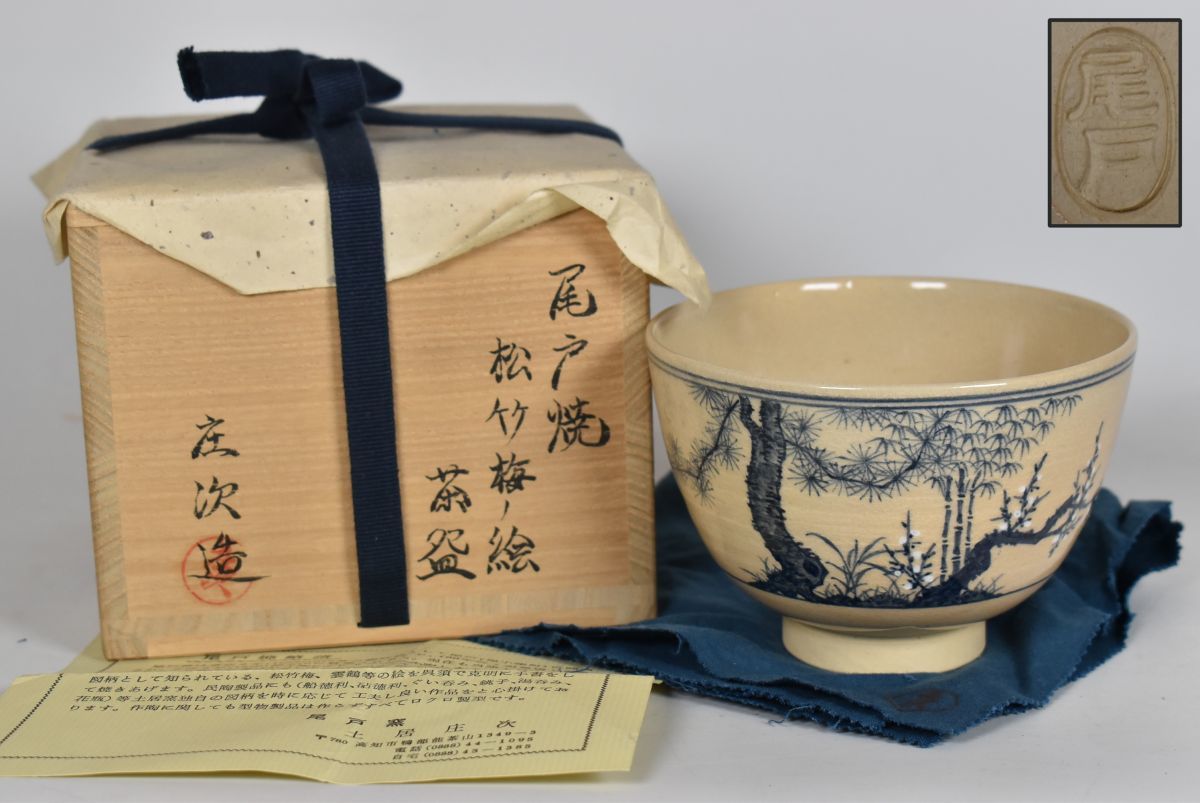 尾戸焼
松竹梅ノ絵
茶盌
庄次造
尾戸
図柄として知られている、松竹梅、雲鶴等の絵を呉須で克明に手書をし
て焼きあげます。民陶製品にも(船徳利、砧徳利、ぐい呑み、銚子、湯呑み、
花瓶)等土居窯独自の図柄を時に応じて工夫し良い作品をと心掛けてお
ります。作陶に関しても型物製品は作らずすべてロクロ製型です。
尾戸窯
土居庄次
〒780 高知市鴨部能茶山1349-3
電話(0888)44-1095
自宅(0888)43-1385